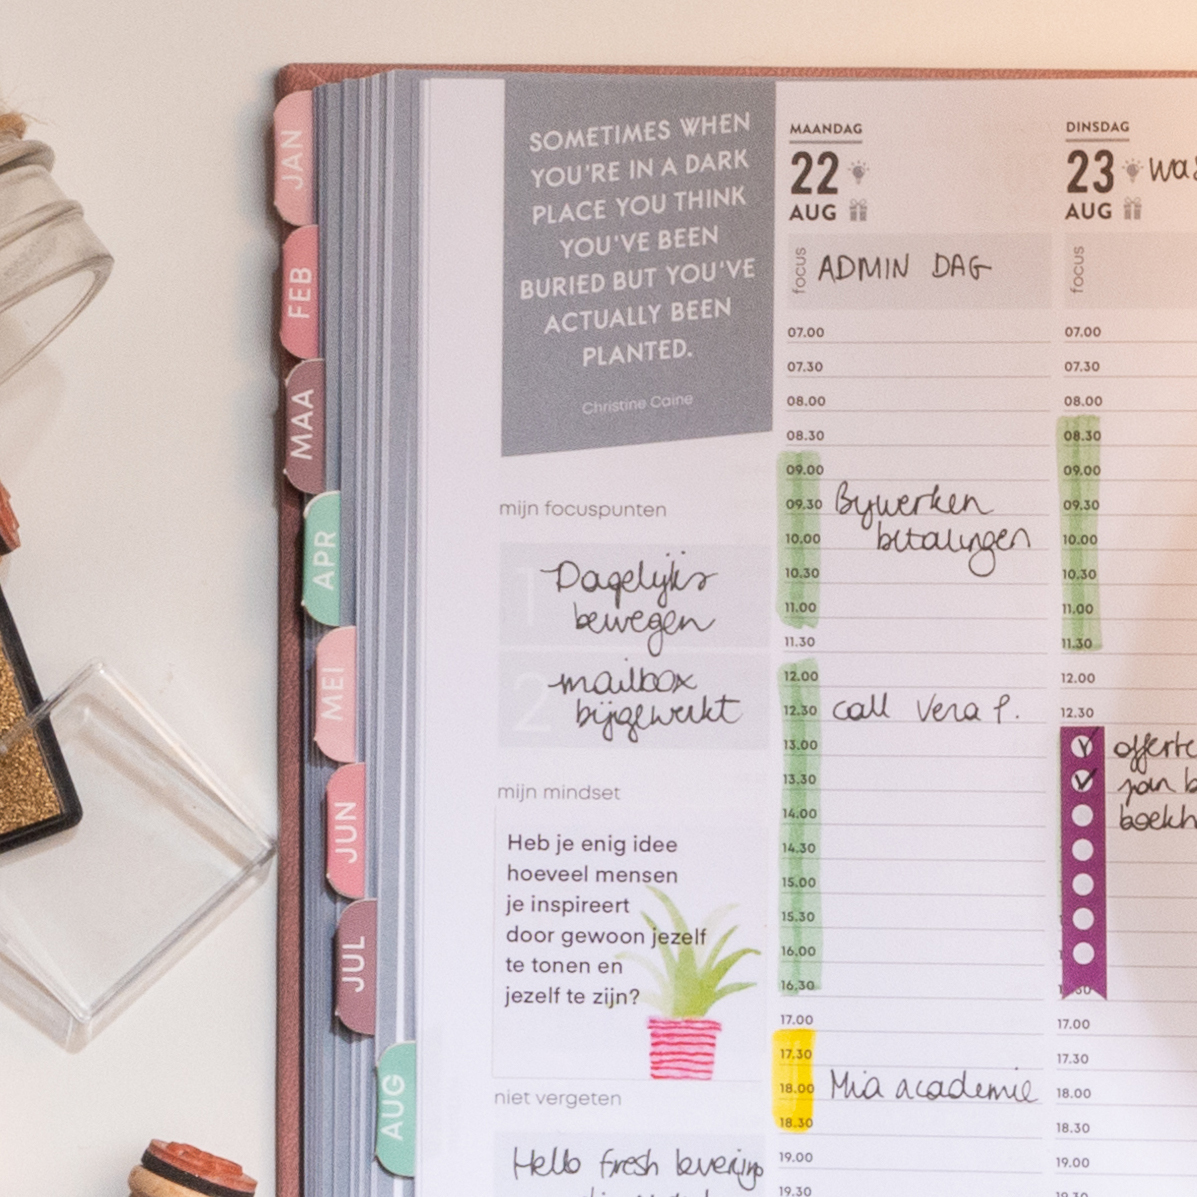 JAN
FEB
MAA
APR
MEI
JUN
JUL
AUG
SOMETIMES WHEN
YOU'RE IN A DARK
PLACE YOU THINK
YOU'VE BEEN
BURIED BUT YOU'VE
ACTUALLY BEEN
PLANTED.
Christine Caine
mijn focuspunten
1 Dagelijks
bewegen
2 mailbox
bijgewerkt
mijn mindset
Heb je enig idee
hoeveel mensen
je inspireert
door gewoon jezelf
te tonen en
jezelf te zijn?
niet vergeten
Hello fresh levering
MAANDAG
22
AUG
focus ADMIN DAG
07.00
07.30
08.00
08.30
09.00
09.30 Bijwerken
10.00 betalingen
10.30
11.00
11.30
12.00
12.30 call Vera P.
13.00
13.30
14.00
14.30
15.00
15.30
16.00
16.30
17.00
17.30
18.00 Mia academie
18.30
19.00
19.30
DINSDAG
23
AUG
focus
07.00
07.30
08.00
08.30
09.00
09.30
10.00
10.30
11.00
11.30
12.00
12.30
offerte
17.00
17.30
18.00
18.30
19.00
19.30